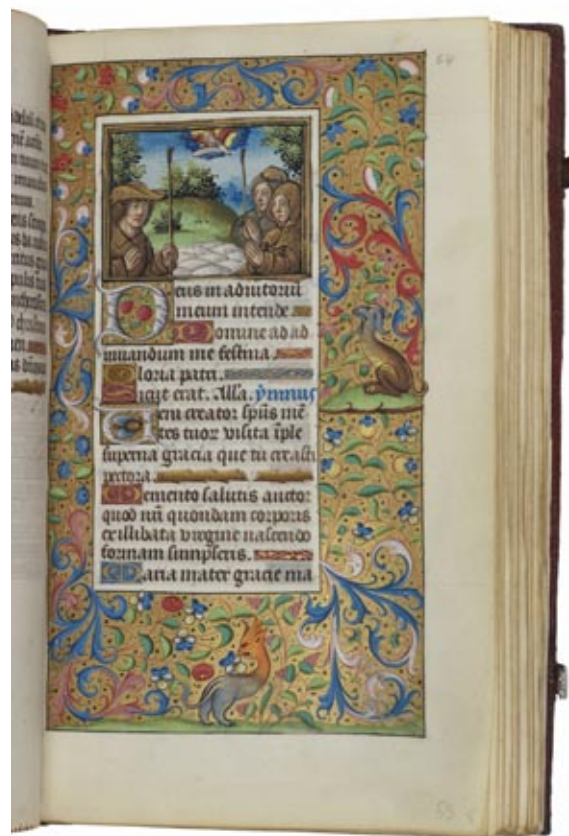 Deus in adiutoriū
meum intende
Domine ad ad
iuuandum me festina
Gloria patri.
Sicut erat. Alla. ymnus
Ueni creator spūs mē
tes tuoꝝ visita īple
superna gracia que tu creasti
pectora.
Memento salutis auctor
quod nr̄i quondam corporis
ex illibata virgine nascendo
formam sumpseris.
Maria mater gracie ma